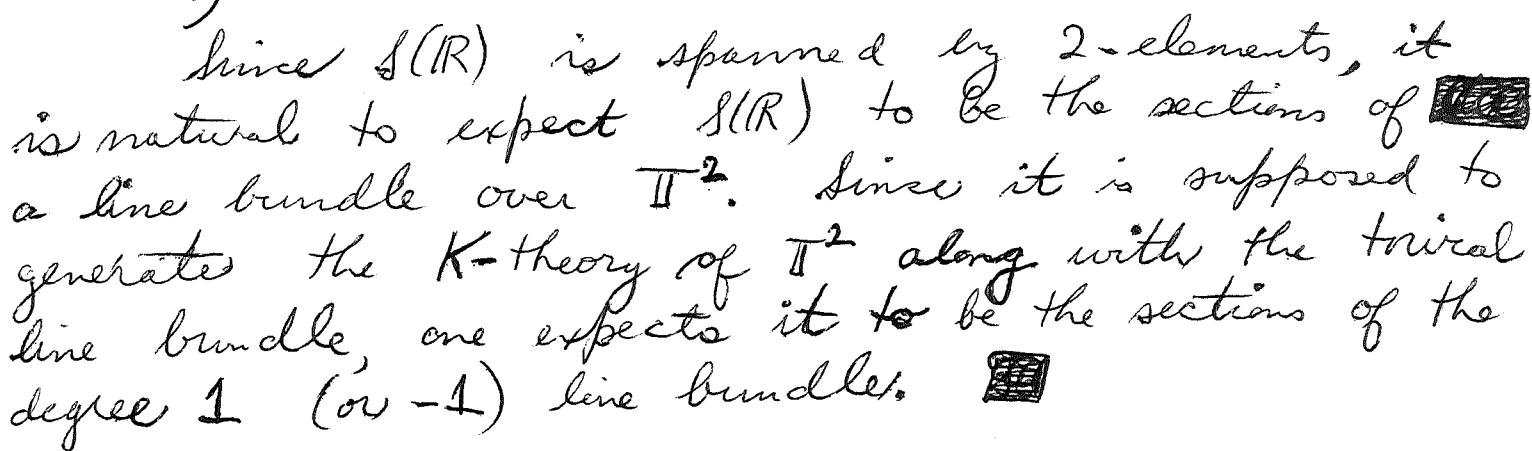 Since S(ℝ) is spanned by 2-elements, it
is natural to expect S(ℝ) to be the sections of
a line bundle over 𝕋². Since it is supposed to
generate the K-theory of 𝕋² along with the trivial
line bundle, one expects it to be the sections of the
degree 1 (or -1) line bundle.